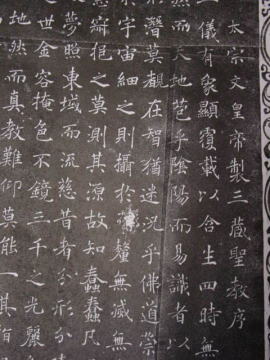 太宗文皇帝製三藏聖教序
二儀有象顯覆載以含生四時無
然而天地苞乎陰陽而易識者以
潛莫覩在智猶迷況乎佛道崇
宇宙細之則攝於豪釐無滅無
寂挹之莫測其源故知蠢蠢凡
夢照東域而流慈昔者分形分
世金容掩色不鏡三千之光麗
地然而真教難仰莫能一其指